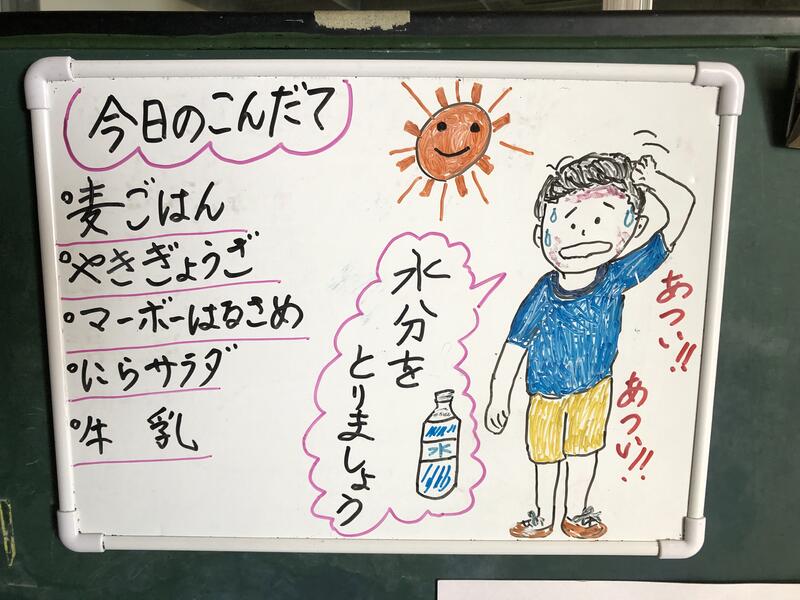 今日のこんだて
麦ごはん
やきぎょうざ
マーボーはるさめ
にらサラダ
牛 乳
水分を
とりましょう
水
あつい!!
あつい!!